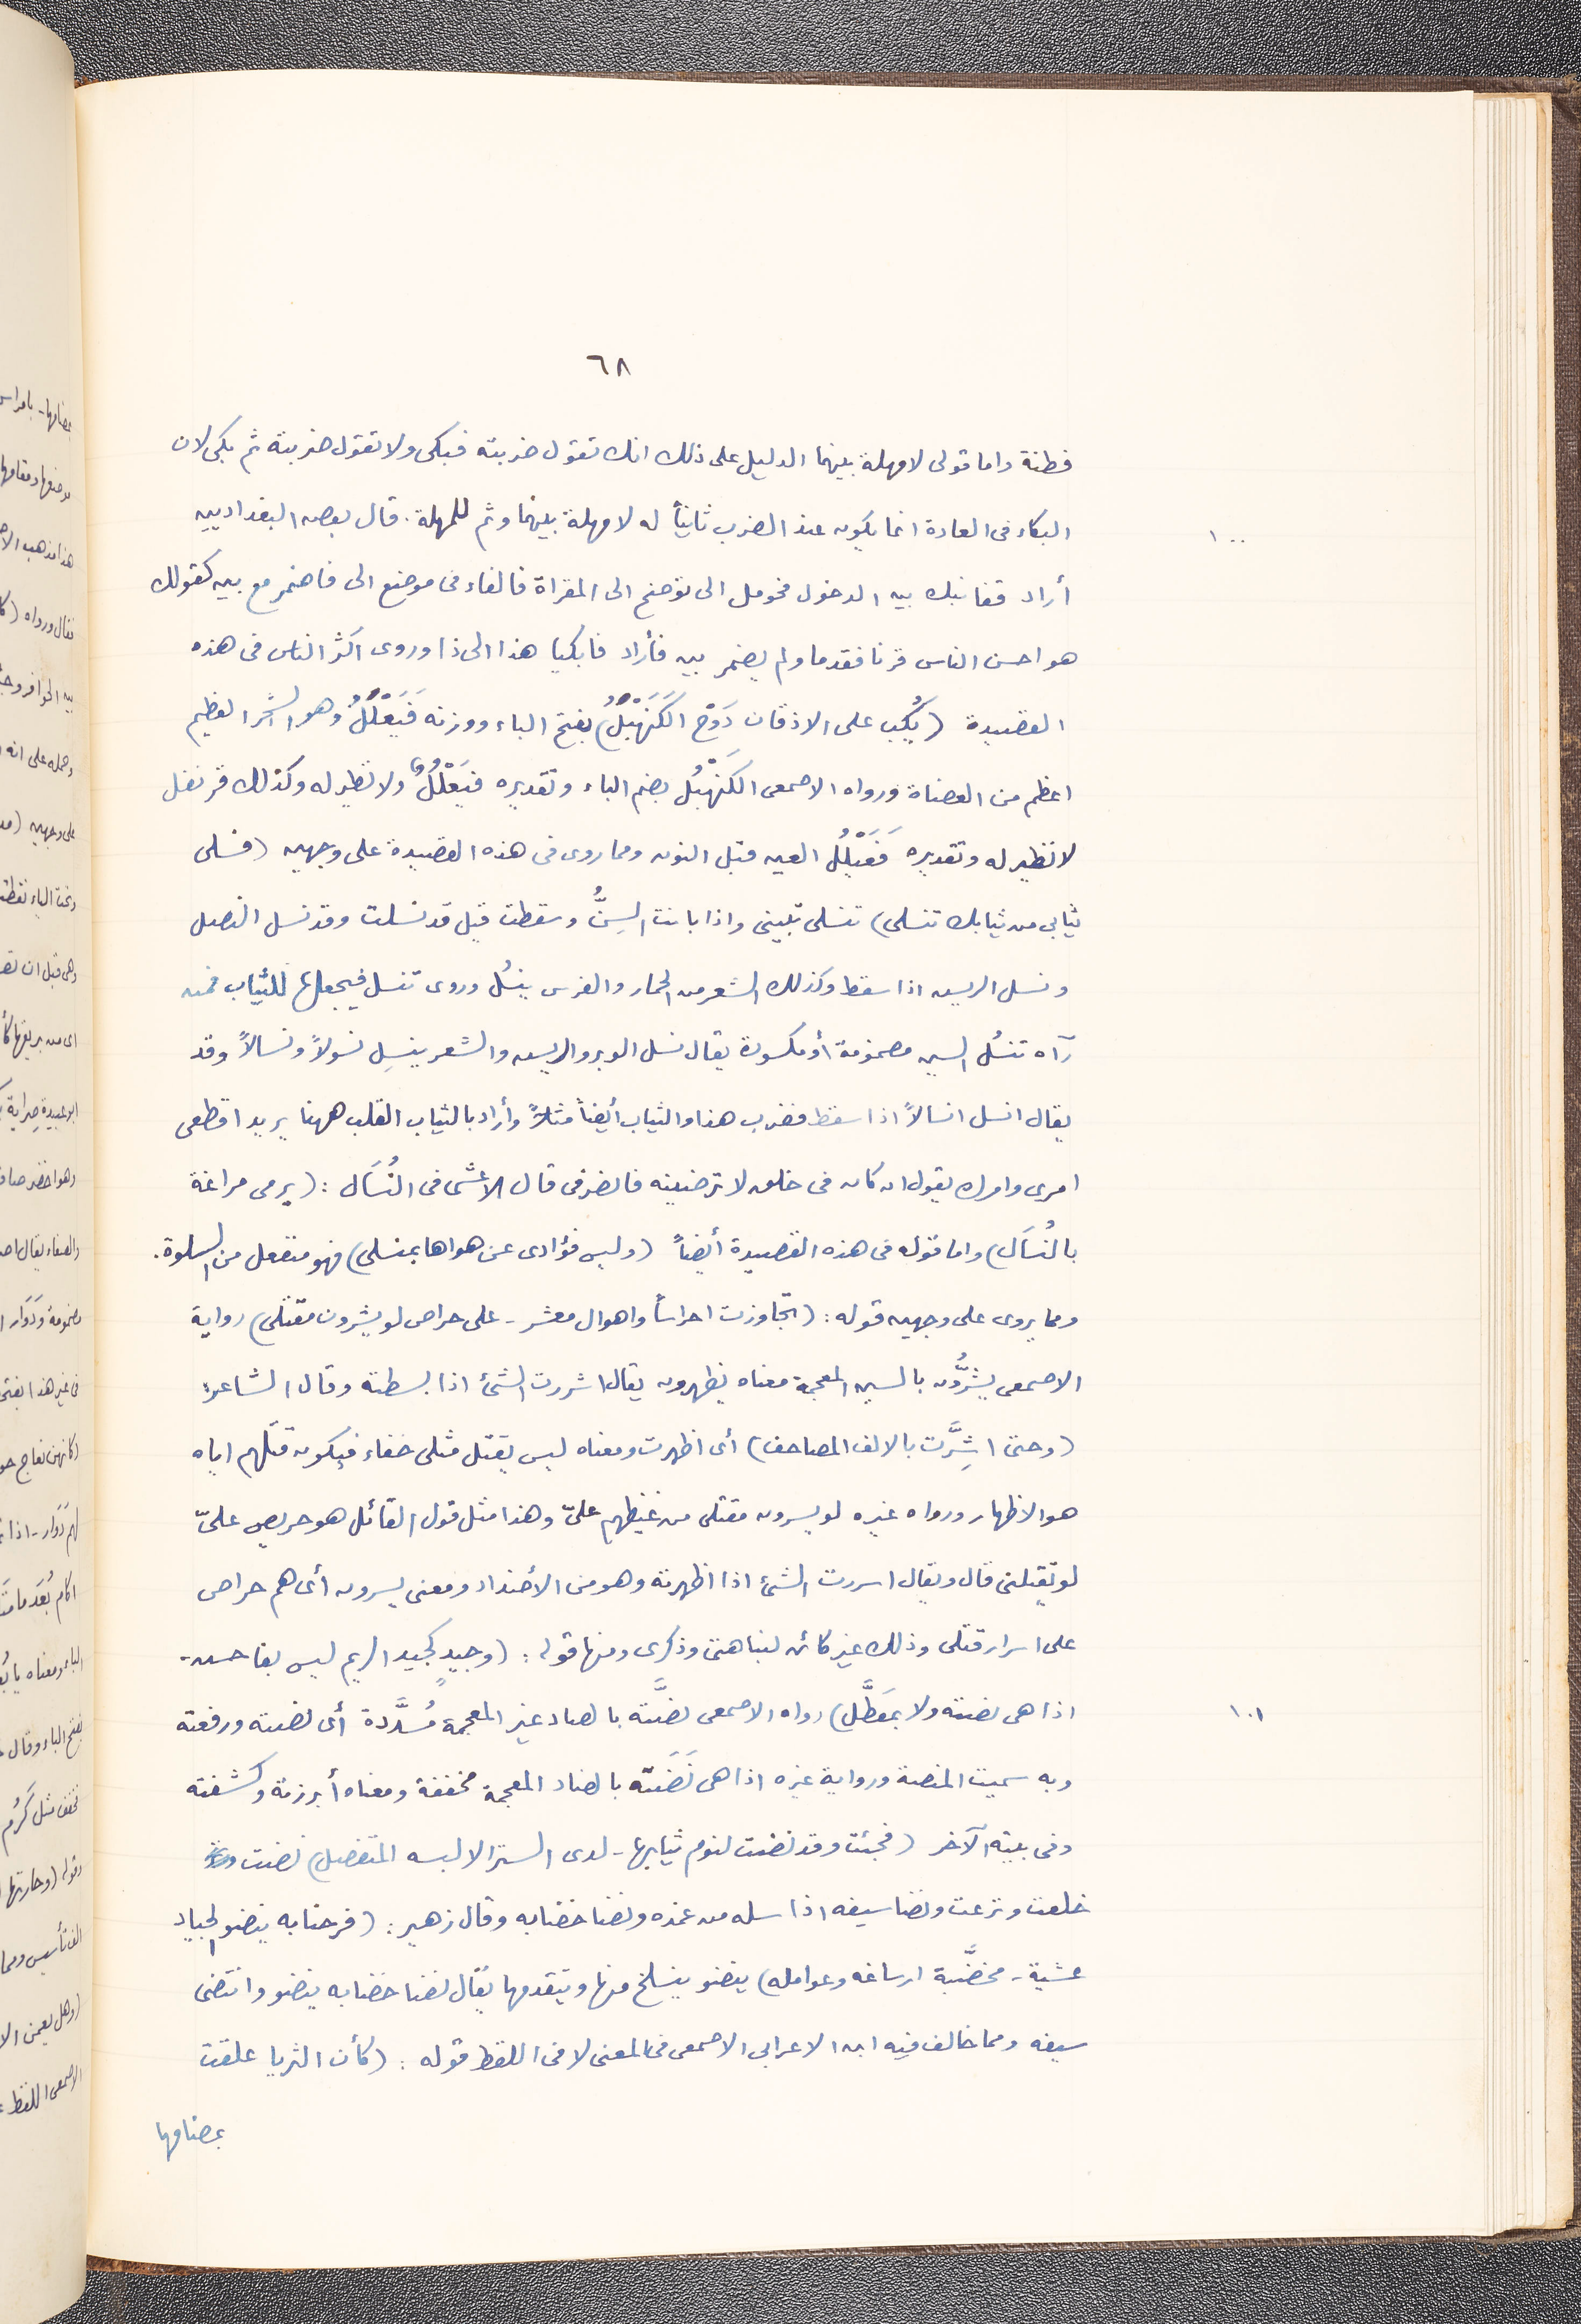 ٦٨
فطنة واما قولى لا مهلة بينهما الدليل على ذلك انك تقول ضربته فبكى ولا تقول ضربته ثم بكى لان
البكاء فى العادة انما يكون عند الضرب ثانياً له لا مهلة بينهما وثم للمهلة. قال بعض البغداديين
١٠٠
أراد قفا نبك بين الدخول فحومل الى توضح الى المقراة فالفاء فى موضع الى فاضمر مع بين كقولك
هو احسن الناس قرنا فقدما ولم يضمر بين فأراد فابكيا هذا الى ذا وروى اكثر الناس فى هذه
القصيدة (يُكب على الاذقان دَوْحَ الكَنَهْبَلُ) بفتح الباء ووزنه فَنَعْلَلُ وهو الشجر العظيم
اعظم من العضاة ورواه الاصمعى الكَنَهْبُل بضم الباء وتقديره فنَعْلُلُ ولا نظير له وكذلك قرنفل
لا نظير له وتقديره فَعَنْلُلُ العين قبل النون ومما روى فى هذه القصيدة على وجهين (فسلى
ثيابى من ثيابك تنسلى) تنسلى تبينى واذا بانت السِنُّ وسقطت قيل قد نسلت وقد نسل النصل
ونسل الريش اذا سقط وكذلك الشعر من الحمار والفرس ينسُل وروى تنسل فيجعلها للثياب فمن
رآه تنسُل السين مضمومة أو مكسورة يقال نسل الوبر والريش والشعر ينسِل نسولاً ونسالاً وقد
يقال انسل انسالاً اذا سقط فضرب هذا والثياب أيضاً مثلاً وأراد بالثياب القلب ههنا يريد اقطعى
امرى وامرك يقول ان كان فى خلق لا ترضينه فانصرفى قال الاعشى فى النُسَال: (يرمى مراغة
بالنُسَال) واما قوله فى هذه القصيدة أيضاً (وليس فؤادى عن هواها بمنسلى) فهو منفعل من السلوة.
ومما يروى على وجهين قوله: (تجاوزت احراساً واهوال معشر - على حراص لو يشرون مقتلى) رواية
الاصمعى يشرُّون بالشين المعجمة معناه يظهرون يقال اشررت الشئ اذا بسطته وقال الشاعر:
(وحتى اشِرَّت بالالف المصاحف) أى اظهرت ومعناه ليس يقتل مثلى خفاء فيكون قتلهم اياه
هو الاظهار ورواه غيره لو يسرون مقتلى من غيظهم علىّ وهذا مثل قول القائل هو حريص علىّ
لو يقتلنى قال ويقال اسررت الشئ اذا اظهرته وهو من الأضداد ومعنى يسرون أى هم حراص
على اسرار قتلى وذلك غير كائن لنباهتى وذكرى ومنها قوله: (وجيدٍ كجيد الريم ليس بفاحش -
اذا هى نصته ولا بمَعَطَّل) رواه الاصمعى نصَّته بالصاد غير المعجمة مُشدَّدة أى نصبته ورفعته
١٠١
وبه سميت المنصة ورواية غيره اذا هى نَضَتَه بالضاد المعجمة مخففة ومعناه أبرزته وكشفته
وفى بيته الآخر (فجئت وقد نضت لنوم ثيابها - لدى الستر الا لبسه المتفضل) نضت
خلعت ونزعت ونضا سيفه اذا سله من غمده ونضا خضابه وقال زهير: (فرحنا به ينضو الجياد
عشية - مخضَّبة ارساغه وعوامله) ينضو ينسلخ منها ويتقدمها يقال نضا خضابه ينضو وانتضى
سيفه ومما خالف فيه ابن الاعرابى الاصمعى فى المعنى لا فى اللفظ قوله: (كأن الثريا علقت
بمصامها